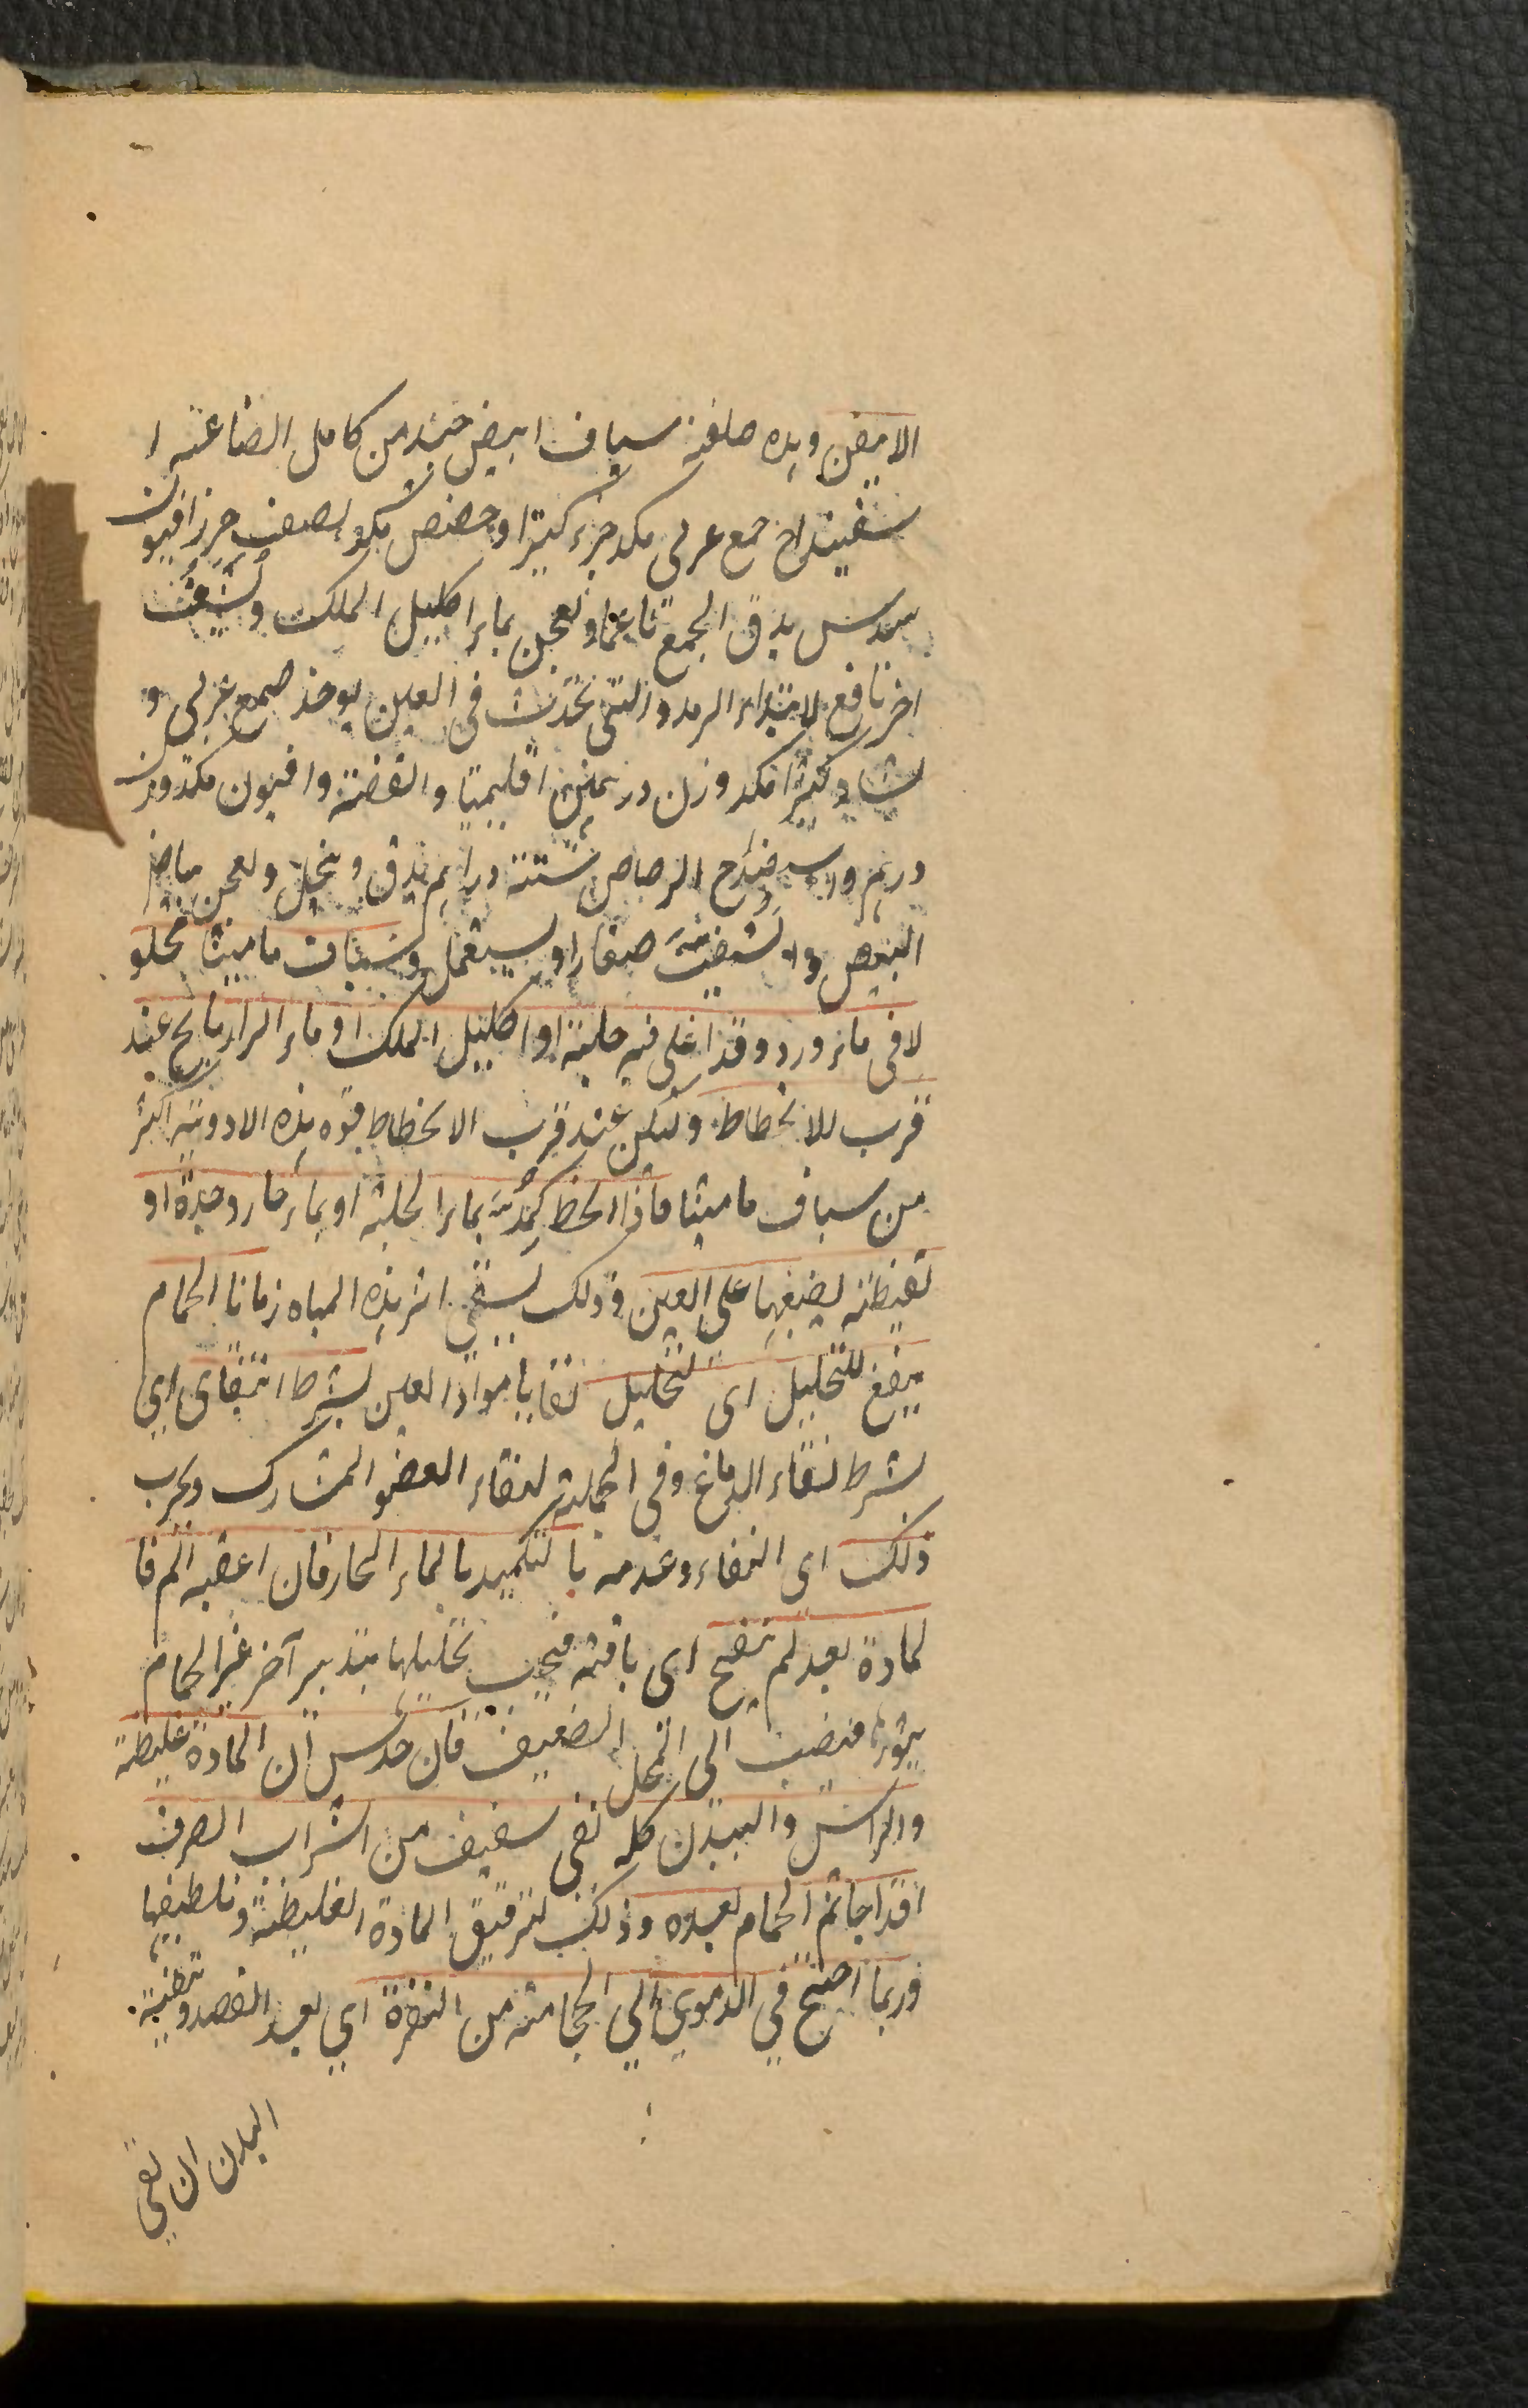 الابيض وهذه صلفة سياف ابيض جيد من كامل الصناعة ا
سفيداج صمغ عربى مكد جزء كثيرا وحضض مكو نصف جزء افيون
سدس يدق الجميع ناعما ويعجن بماء اكليل الملك ويشيف
اخر نافع لابتداء الرمد والتى تحدث فى العين يوخذ صمغ عربى و
نشا وكثيرا مكد وزن درهمين اقليميا والفضة وافيون مكد وزن
درهم واسفيداج الرصاص ستة دراهم يدق وينخل ويعجن ببياض
البيض و صغارا ويستعمل وشياف ماميثا محلو
لا فى ماء ورد وقد اغلى فيه حلبة او اكليل الملك او ماء الرازيانج عند
قرب للانحطاط وليكن عند قرب الانحطاط قوة هذه الادوية اكثر
من سياف ماميثا فاذا انحط كمدته بماء الحلبة او بماء حار وحده او
تقيطنه يضعها على العين وذلك ليبقى اثر هذه المياه زمانا الحمام
ينفع للتحليل اى لتحليل بقايا مواد العين بشرط النقاء اى
بشرط نقاء الدماغ وفى الجملة لنقاء العضو المشارك ويجرب
ذلك اى النقاء وعدمه بالتكميد بالماء الحار فان اعقبه الم فا
لمادة بعد لم تنضج اى باقية فيجب تحليلها بتدبير آخر غير الحمام
يثورها فينصب الى المحل الضعيف فان حدس ان المادة غليظة
والراس والبدن كله نقى سقيف من الشراب الصرف
اقداحا ثم الحمام بعده وذلك لترقيق المادة الغليظة وتلطيفها
وربما احتيج فى الدموى الى الحجامة من النقرة اى بعد الفصد وتنقية
البدن ان بقى